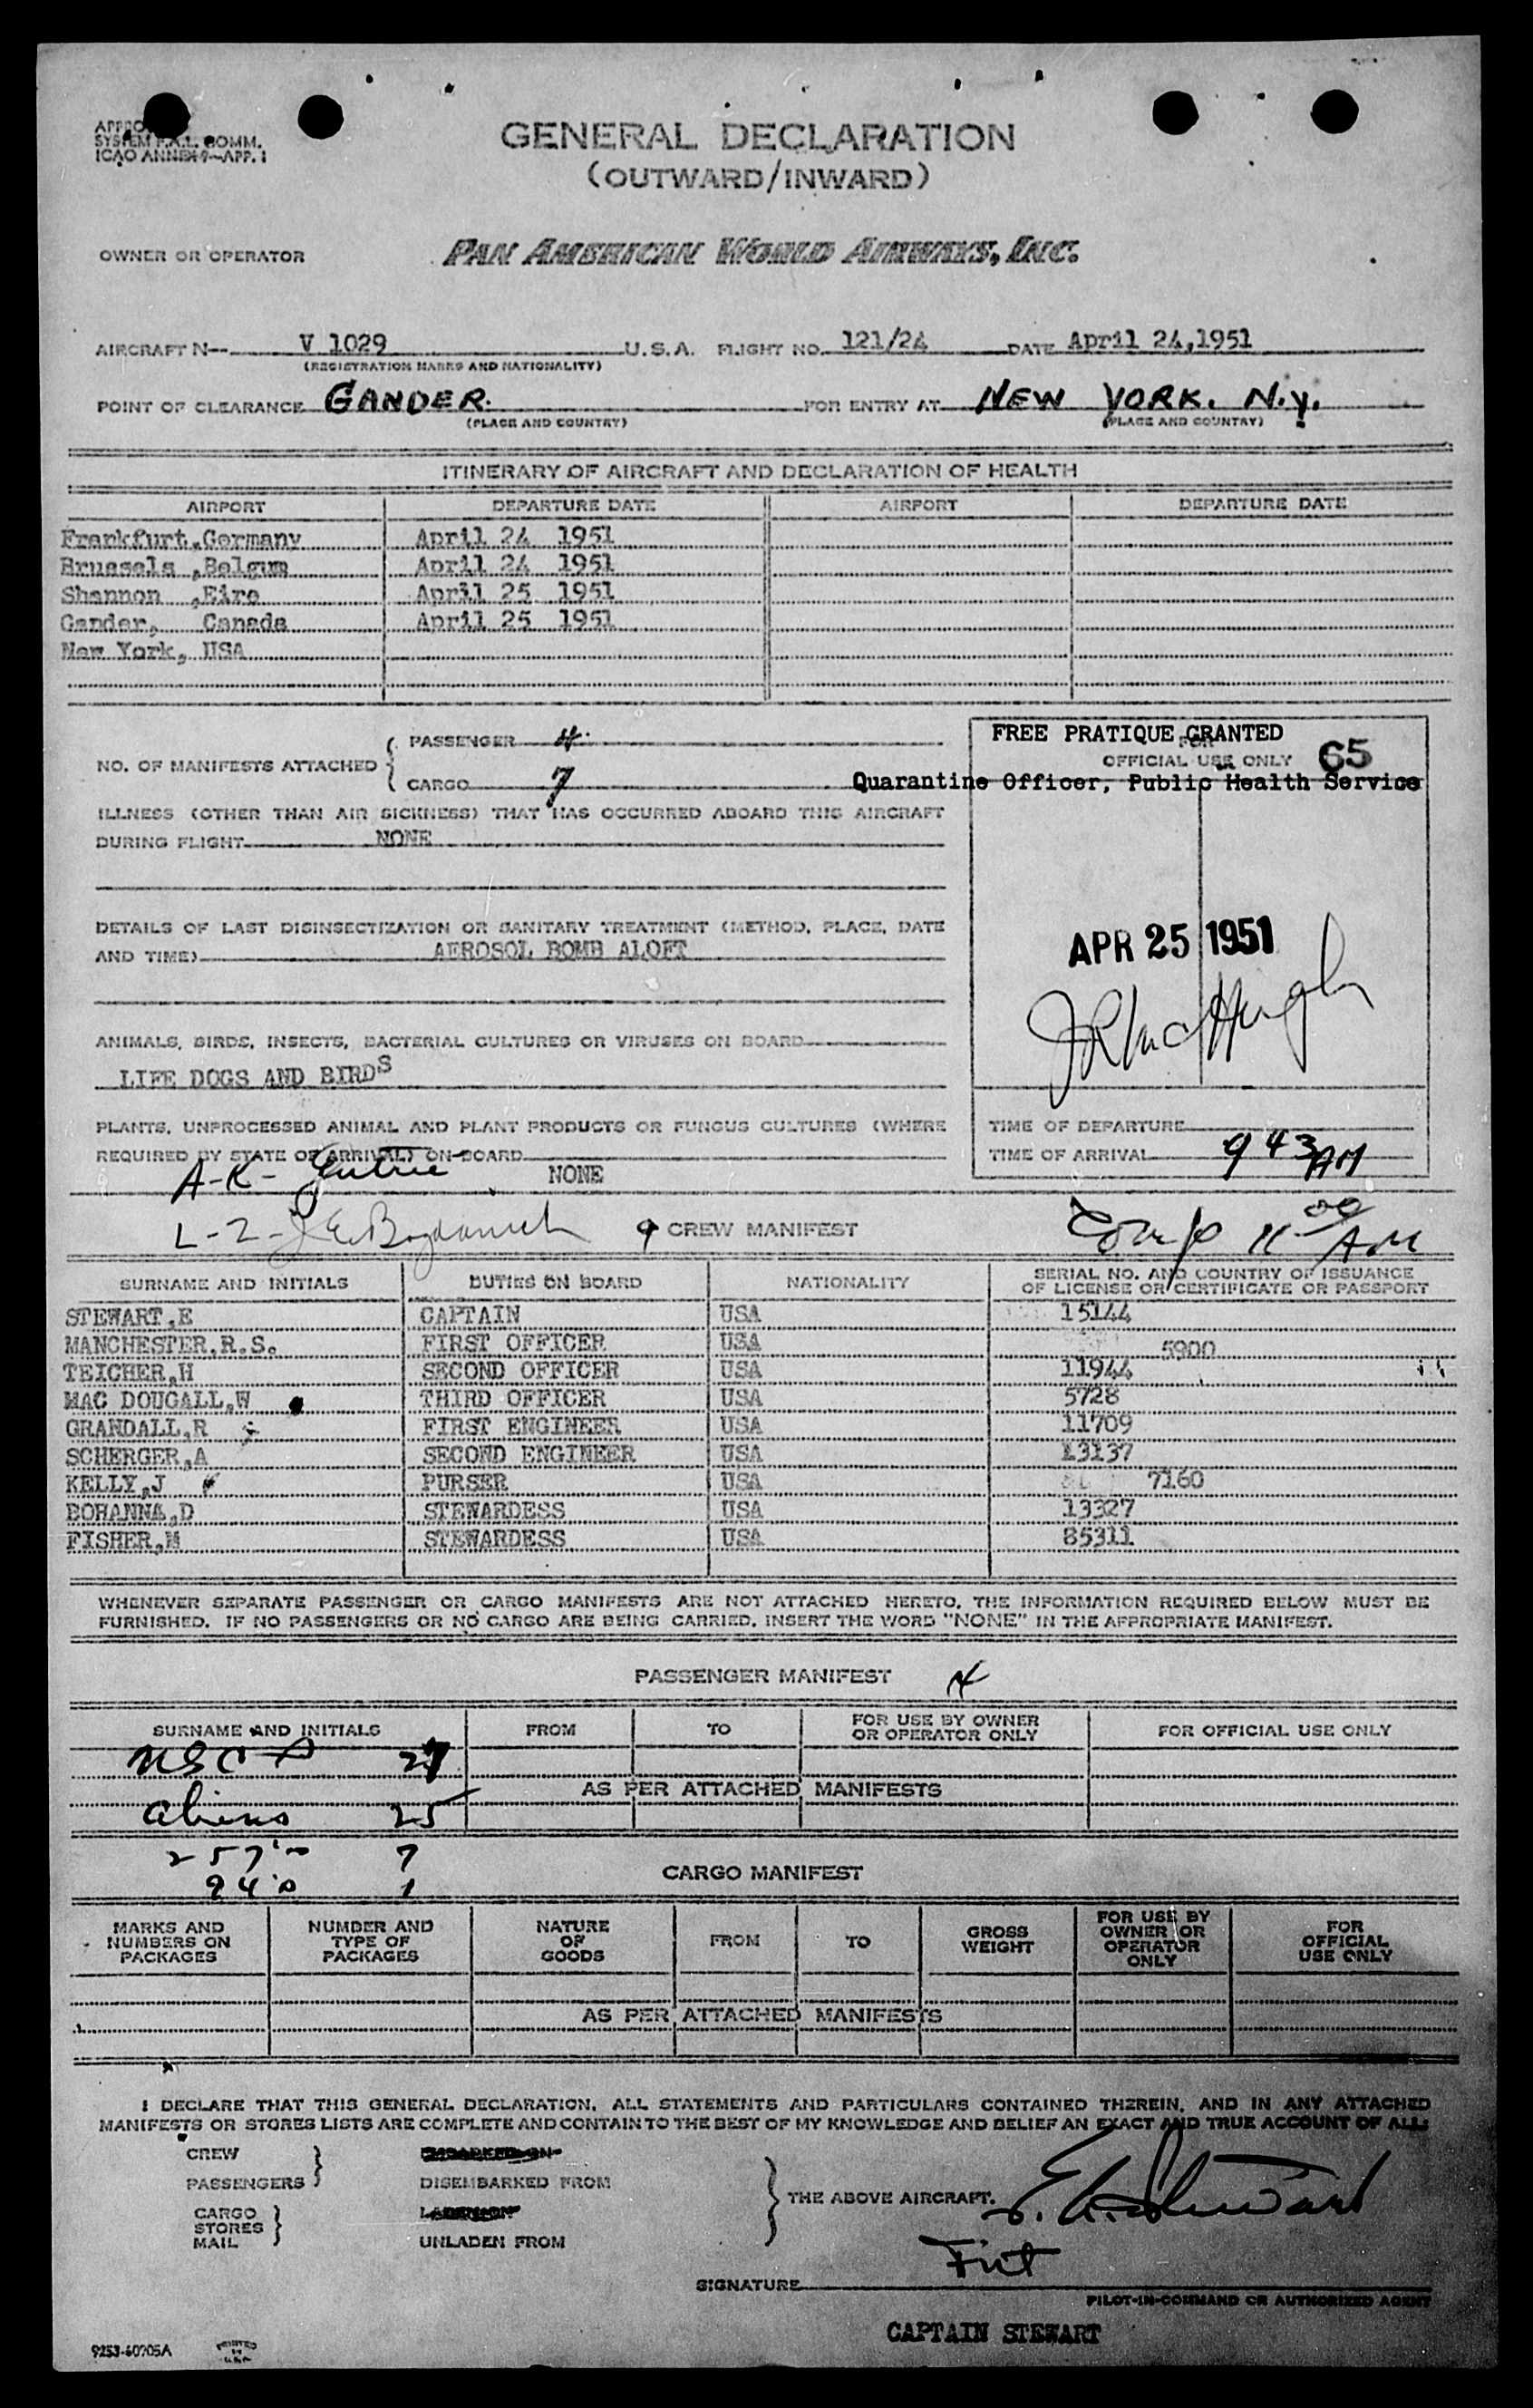 SYSTEM F.A.L. COMM.
ICAO ANNEX 9—APP. 1
GENERAL DECLARATION
(OUTWARD/INWARD)
OWNER OR OPERATOR PAN AMERICAN WORLD AIRWAYS, INC.
AIRCRAFT N-- V 1029 U.S.A. FLIGHT NO. 121/24 DATE April 24,1951
(REGISTRATION MARKS AND NATIONALITY)
POINT OF CLEARANCE GANDER. FOR ENTRY AT NEW YORK. N.Y.
(PLACE AND COUNTRY) (PLACE AND COUNTRY)
ITINERARY OF AIRCRAFT AND DECLARATION OF HEALTH
AIRPORT DEPARTURE DATE AIRPORT DEPARTURE DATE
Frankfurt,Germany April 24 1951
Brussels ,Belgum April 24 1951
Shannon ,Eire April 25 1951
Gander, Canada April 25 1951
New York, USA
NO. OF MANIFESTS ATTACHED { PASSENGER 4
CARGO 7
FREE PRATIQUE GRANTED
FOR
OFFICIAL USE ONLY 65
Quarantine Officer, Public Health Service
ILLNESS (OTHER THAN AIR SICKNESS) THAT HAS OCCURRED ABOARD THIS AIRCRAFT
DURING FLIGHT NONE
DETAILS OF LAST DISINSECTIZATION OR SANITARY TREATMENT (METHOD, PLACE, DATE
AND TIME) AEROSOL BOMB ALOFT
APR 25 1951
ANIMALS, BIRDS, INSECTS, BACTERIAL CULTURES OR VIRUSES ON BOARD
LIFE DOGS AND BIRDS
PLANTS, UNPROCESSED ANIMAL AND PLANT PRODUCTS OR FUNGUS CULTURES (WHERE
REQUIRED BY STATE OF ARRIVAL) ON BOARD
NONE
TIME OF DEPARTURE
TIME OF ARRIVAL 9 43 AM
A-K-
L-2- 9 CREW MANIFEST Comp 11 00 AM
SURNAME AND INITIALS DUTIES ON BOARD NATIONALITY SERIAL NO. AND COUNTRY OF ISSUANCE
OF LICENSE OR CERTIFICATE OR PASSPORT
STEWART,E CAPTAIN USA 15144
MANCHESTER,R.S. FIRST OFFICER USA 5900
TEICHER,H SECOND OFFICER USA 11944
MAC DOUGALL,W THIRD OFFICER USA 5728
GRANDALL,R FIRST ENGINEER USA 11709
SCHERGER,A SECOND ENGINEER USA 13137
KELLY,J PURSER USA 7160
BOHANNA,D STEWARDESS USA 13327
FISHER,M STEWARDESS USA 85311
WHENEVER SEPARATE PASSENGER OR CARGO MANIFESTS ARE NOT ATTACHED HERETO, THE INFORMATION REQUIRED BELOW MUST BE
FURNISHED. IF NO PASSENGERS OR NO CARGO ARE BEING CARRIED, INSERT THE WORD "NONE" IN THE APPROPRIATE MANIFEST.
PASSENGER MANIFEST 4
SURNAME AND INITIALS FROM TO FOR USE BY OWNER
OR OPERATOR ONLY FOR OFFICIAL USE ONLY
USC 27
AS PER ATTACHED MANIFESTS
aliens 25
257's 7
CARGO MANIFEST
MARKS AND
NUMBERS ON
PACKAGES
NUMBER AND
TYPE OF
PACKAGES
NATURE
OF
GOODS
FROM
TO
GROSS
WEIGHT
FOR USE BY
OWNER OR
OPERATOR
ONLY
FOR
OFFICIAL
USE ONLY
AS PER ATTACHED MANIFESTS
I DECLARE THAT THIS GENERAL DECLARATION, ALL STATEMENTS AND PARTICULARS CONTAINED THEREIN, AND IN ANY ATTACHED
MANIFESTS OR STORES LISTS ARE COMPLETE AND CONTAIN TO THE BEST OF MY KNOWLEDGE AND BELIEF AN EXACT AND TRUE ACCOUNT OF ALL:
CREW EMBARKED ON
PASSENGERS } DISEMBARKED FROM
THE ABOVE AIRCRAFT. E. A. Stewart
CARGO LADEN ON
STORES }
MAIL UNLADEN FROM
SIGNATURE
PILOT-IN-COMMAND OR AUTHORIZED AGENT
CAPTAIN STEWART
9253-60705A PRINTED
IN
U.S.A.